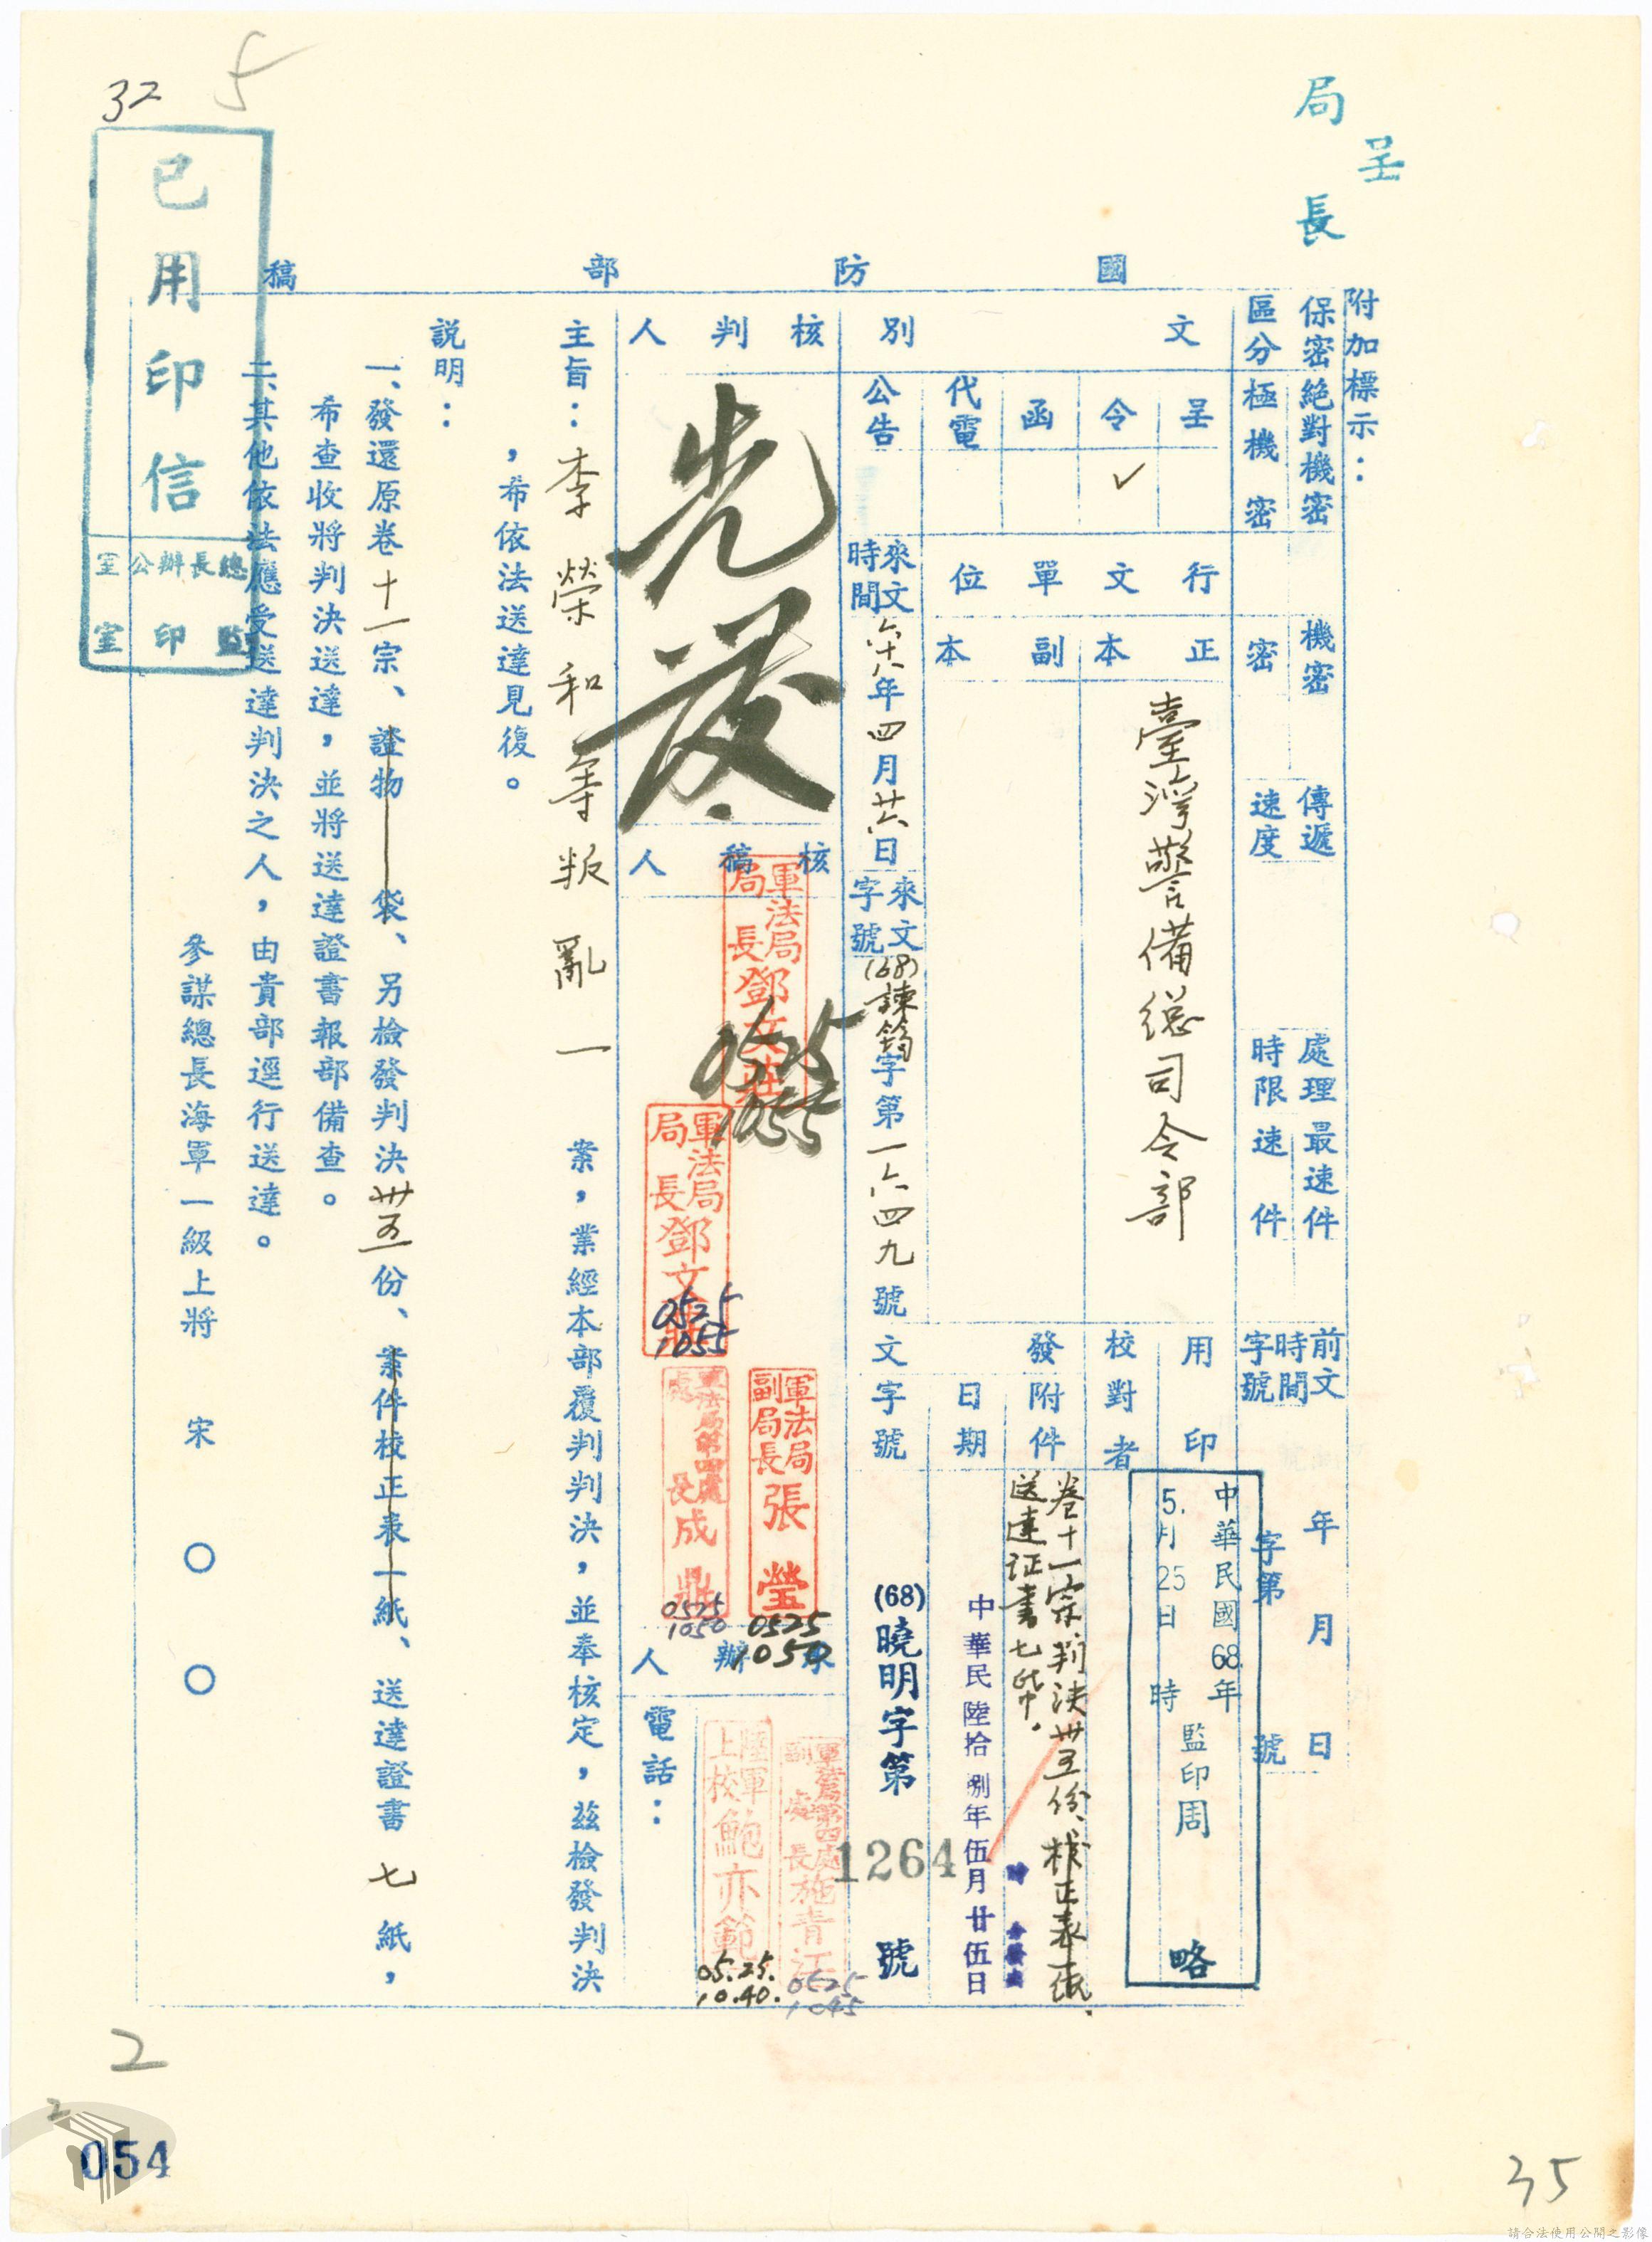 32
5
局長
呈
國防部稿
附加標示：
保密區分
絕對機密
極機密
機密
密
傳遞速度
處理時限
最速件
速件
前文時間字號
年月日
字第號
文別
呈
令 ✓
函
代電
公告
行文單位
正本
副本
臺灣警備總司令部
用印
校對者
中華民國68年
5.月25日 時
監印周 略
發
附件
卷十一宗、判決卅五份、校正表一紙、
送達证書七份。
日期
中華民陸拾捌年伍月廿伍日
時
文字號
(68)曉明字第1264號
來文時間
六十八年四月廿六日
來文字號
(68)諫筠字第一六四九號
核判人
先發
核稿人
軍法局局長鄧文莊
0525
1055
軍法局局長鄧文莊
0525
1055
軍法局副局長張瑩
0525
1050
軍法局第四處處長成鼎
0525
1050
承辦人
軍法局第四處副處長施青江
0525
1045
陸軍上校鮑亦範
05.25.
10.40.
電話：
主旨：李榮和等叛亂一案，業經本部覆判判決，並奉核定，茲檢發判決
，希依法送達見復。
說明：
一、發還原卷十一宗、證物 袋、另檢發判決卅五份、案件校正表一紙、送達證書七紙，
希查收將判決送達，並將送達證書報部備查。
二、其他依法應受送達判決之人，由貴部逕行送達。
參謀總長海軍一級上將 宋 ○ ○
已用印信
總長辦公室
監印室
2
2
054
35
請合法使用公開之影像